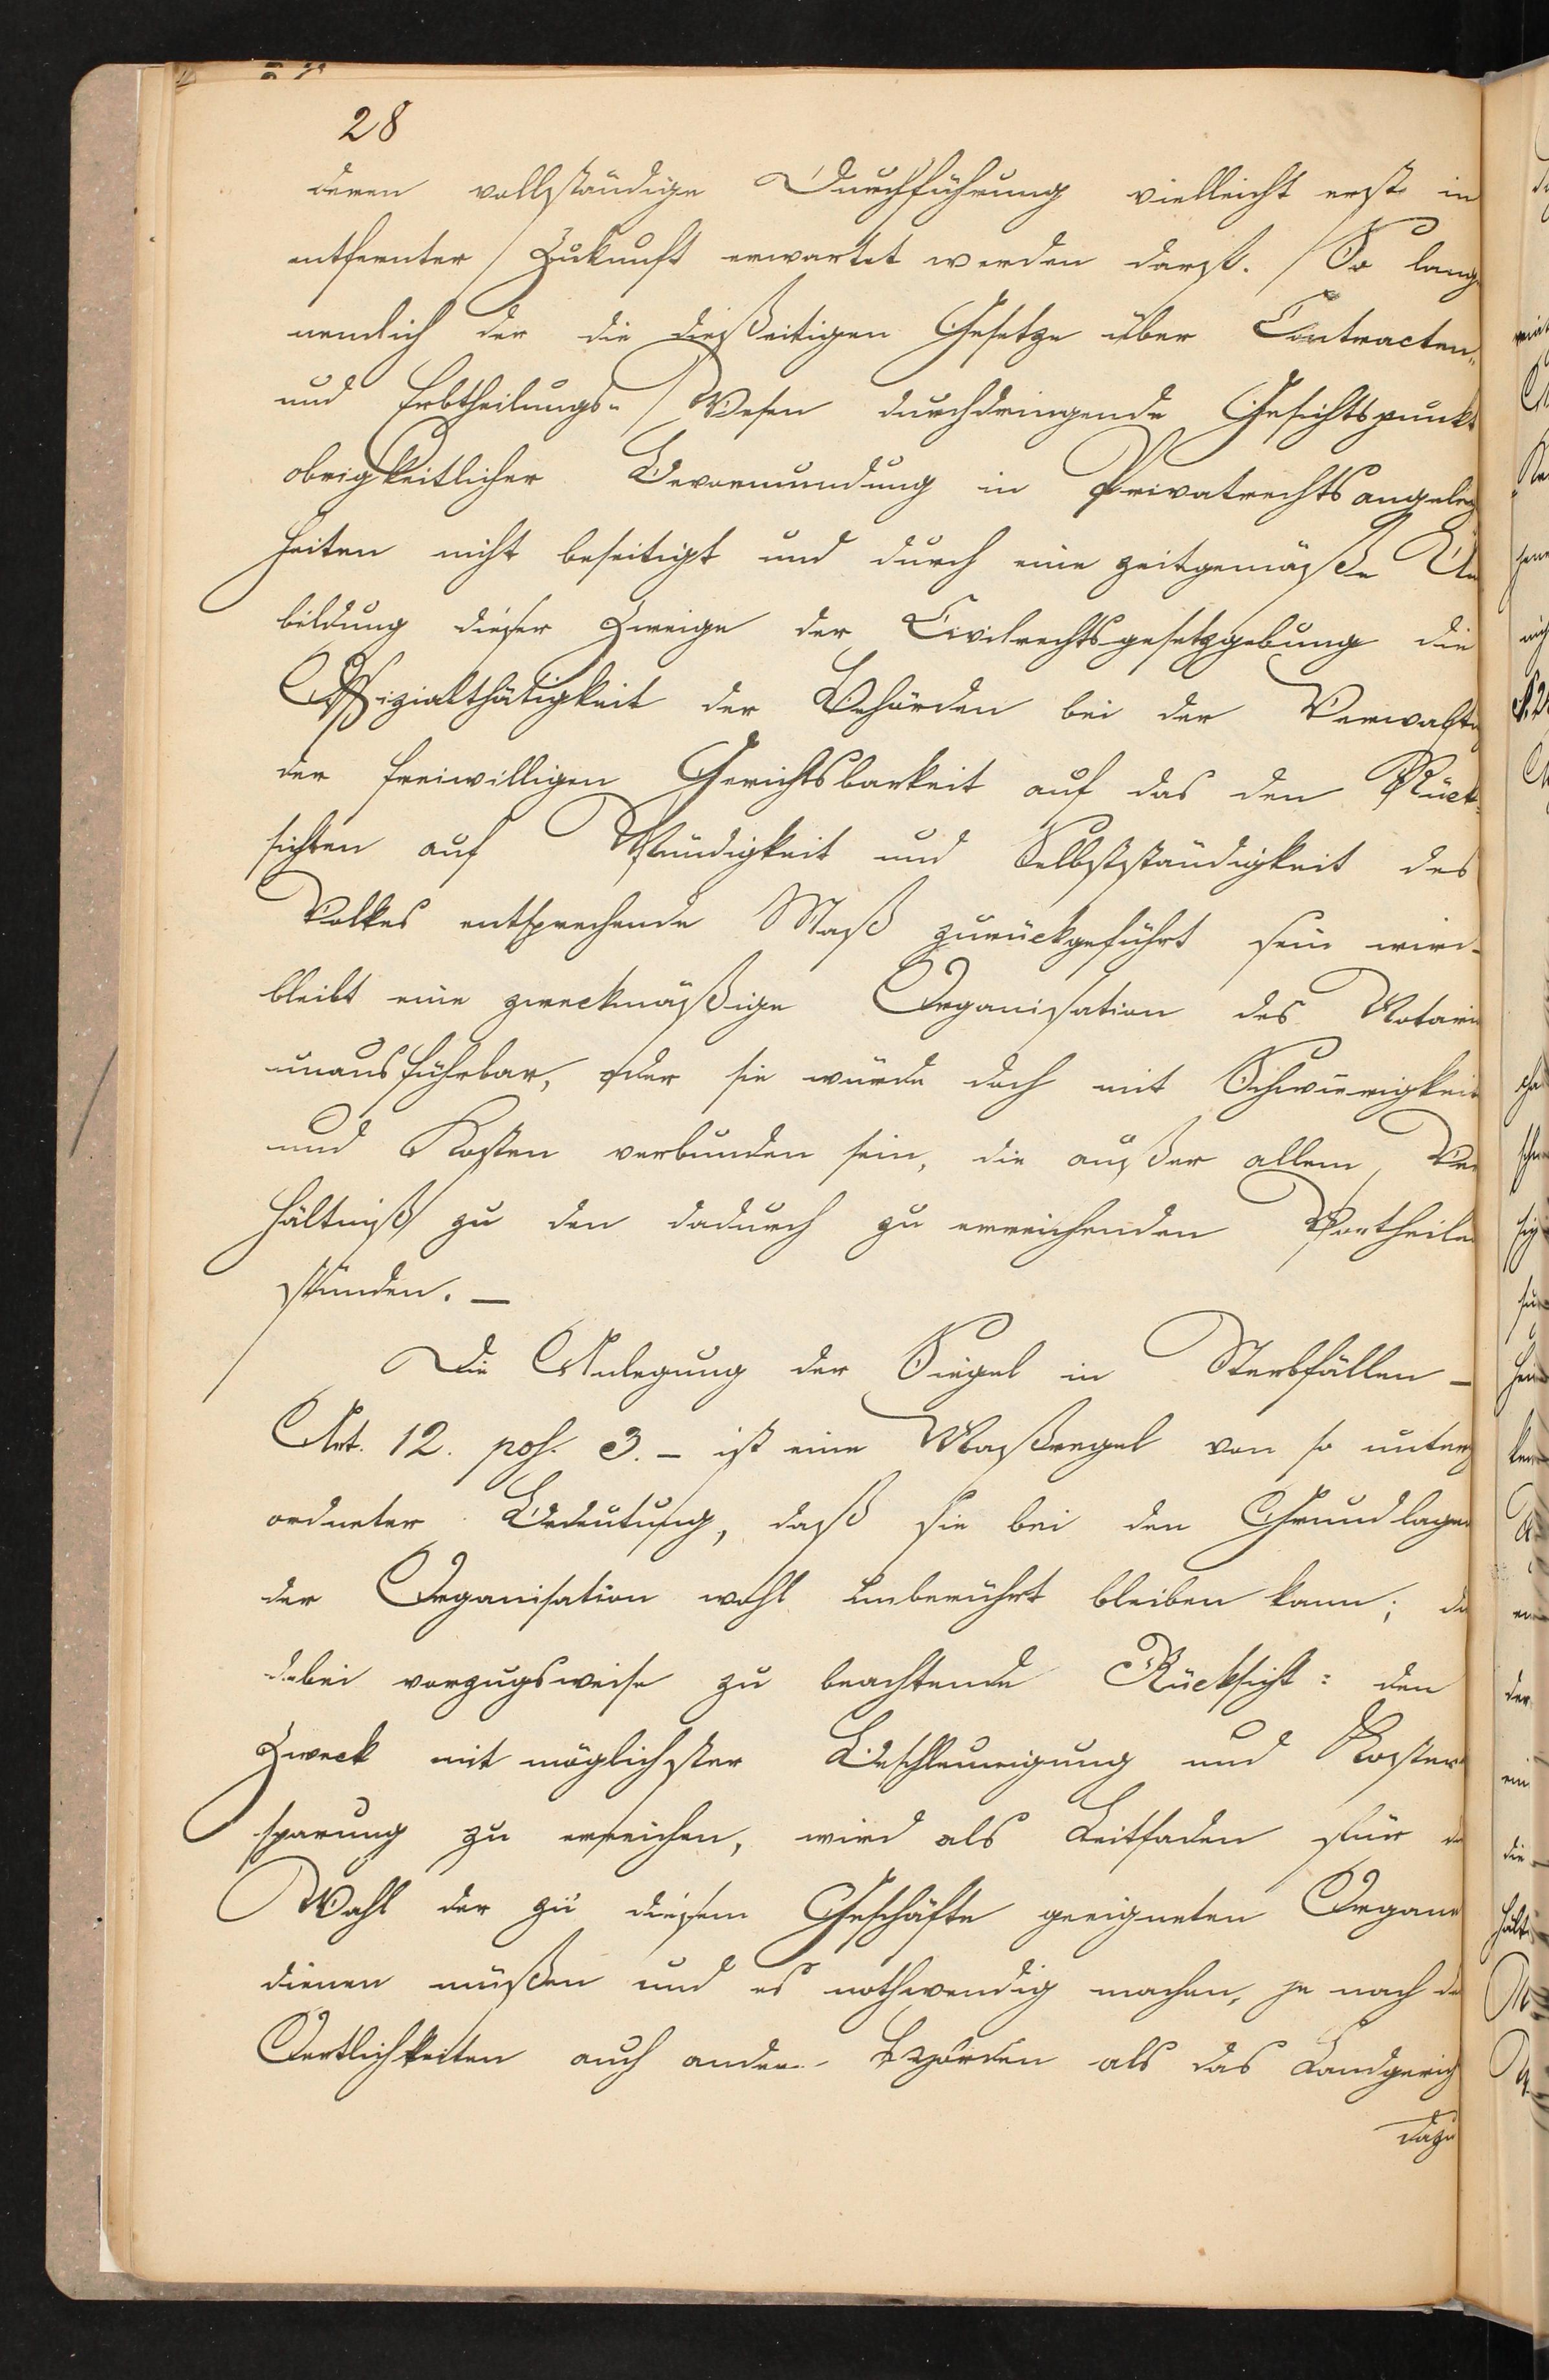 28
deren vollständige Durchführung vielleicht erst in
entfernter Zukunft erwartet werden darf. So lang
nemlich der die dießeitigen Gesetze über Contracten-
und Erbtheilungs-Wesen durchdringende Gesichtspunkt
obrigkeitlicher Bevormundung in Privatrechtsangeleg
heiten nicht beseitigt und durch eine zeitgemäße Um
bildung dieser Zweige der Civilrechtsgesetzgebung die
Offizialthätigkeit der Behörden bei der Verwaltu
der freiwilligen Gerichtsbarkeit auf das den Rück-
sichten auf Mündigkeit und Selbstständigkeit des
Volkes entsprechende Maß zurückgeführt sein wird
bleibt eine zweckmäßige Organisation des Notaria
unausführbar, oder sie würde doch mit Schwierigkeit
und Kosten verbunden sein, die außer allem Ver
hältniß zu den dadurch zu erreichenden Vortheilen
stünden. —
Die Anlegung der Siegel in Sterbfällen —
Art. 12. pos. 3. — ist eine Maßregel von so unterg
ordneter Bedeutung, daß sie bei den Grundlagen
der Organisation wohl unberührt bleiben kann; die
dabei vorzugsweise zu beachtende Rücksicht: den
Zweck mit möglichster Beschleunigung und Kosten
sparung zu erreichen, wird als Leitfaden für die
Wahl der zu diesem Geschäfte geeigneten Organe
dienen müßen und es nothwendig machen, je nach den
Oertlichkeiten auch andere Behörden als das Landgerich
dazu